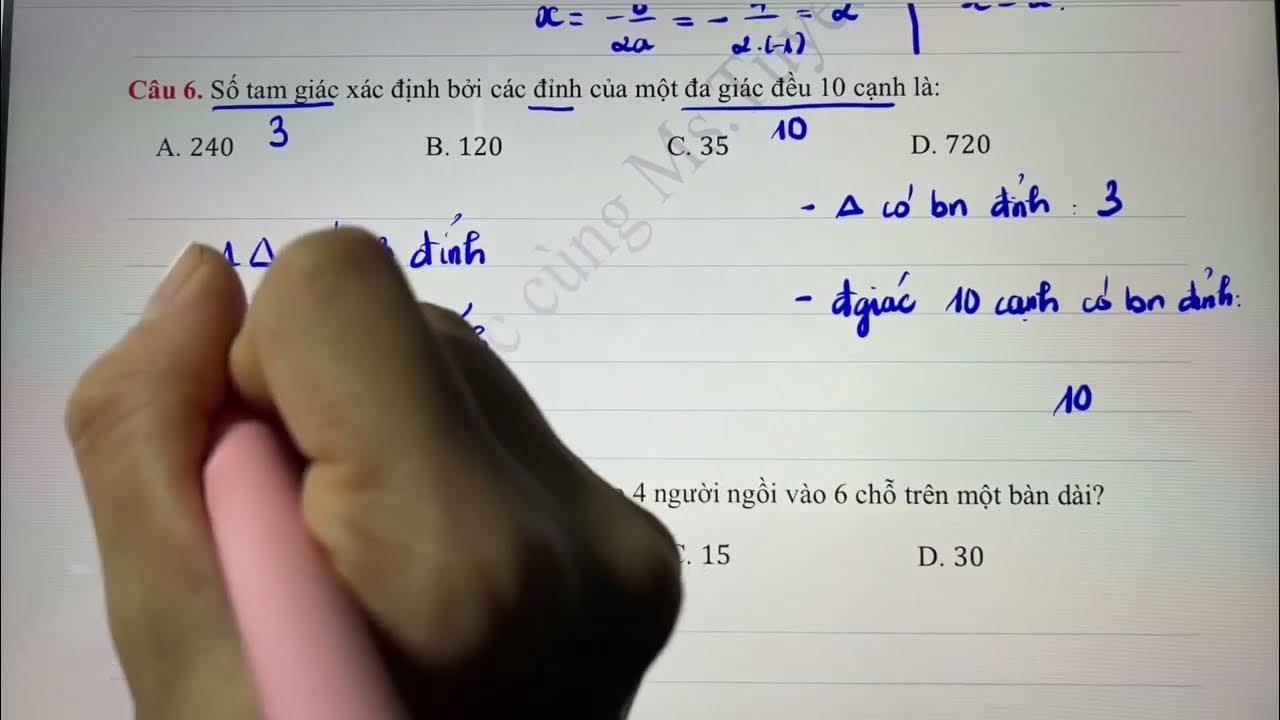 x = = - = 2
2a 2.(-1)
Câu 6. Số tam giác xác định bởi các đỉnh của một đa giác đều 10 cạnh là:
3 10
A. 240 B. 120 C. 35 D. 720
- Δ có bn đỉnh : 3
1 Δ đỉnh
- đgiác 10 cạnh có bn đỉnh:
10
4 người ngồi vào 6 chỗ trên một bàn dài?
C. 15 D. 30
cùng Ms.